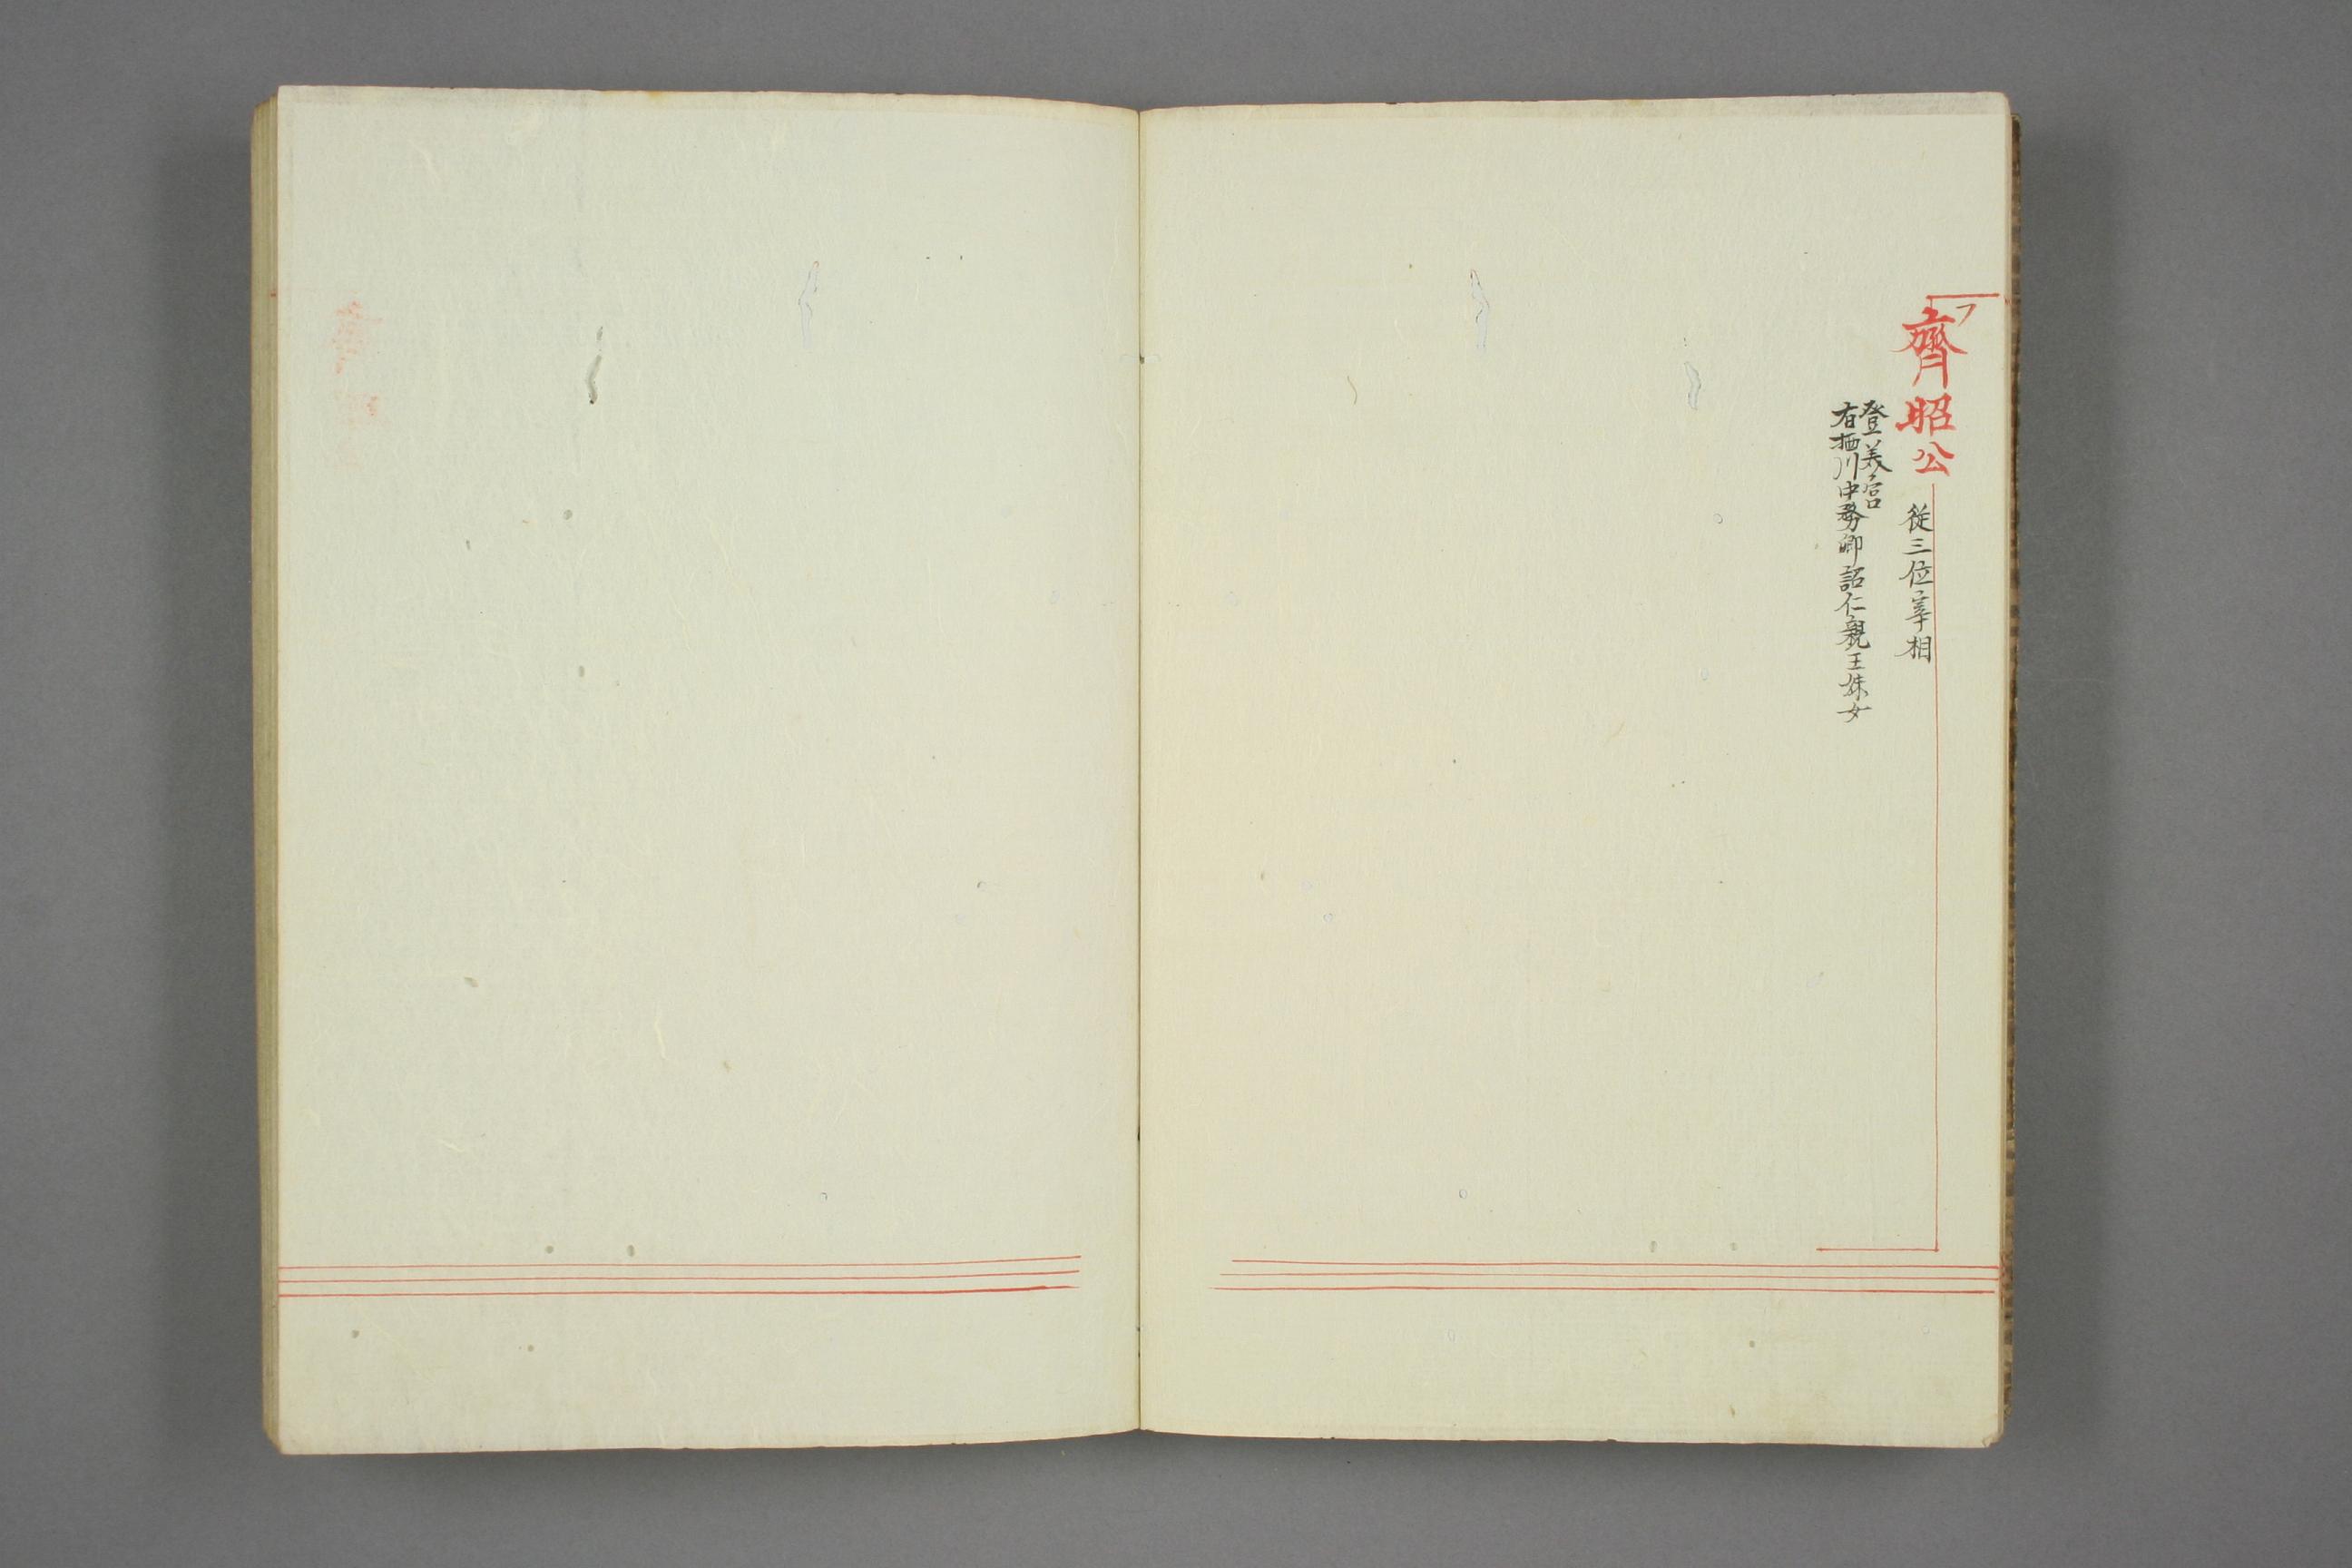 フ
齊昭公
従三位宰相
登美宮
右栖川中務卿詔仁親王妹女